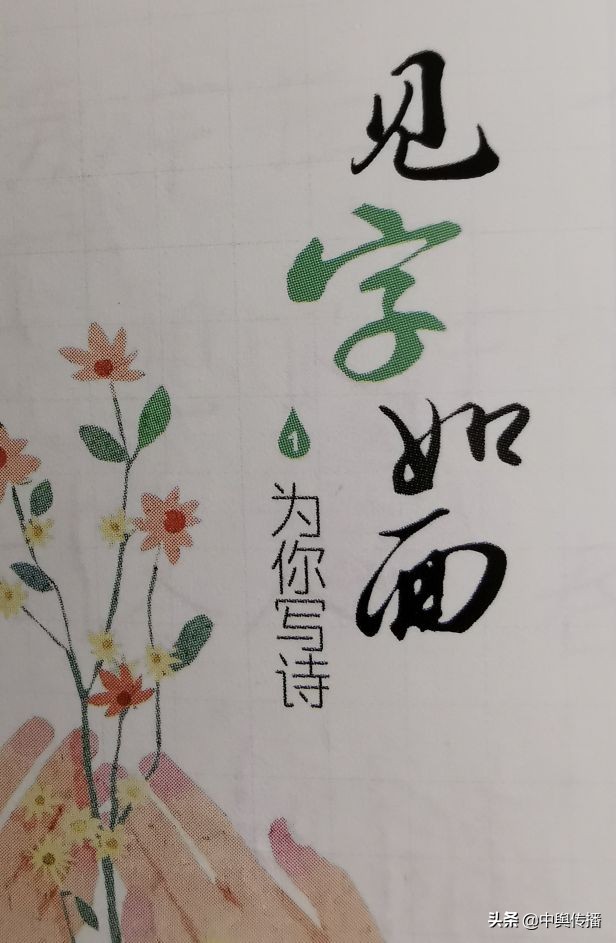 见字如面
1
为你写诗
头条 @中舆传播